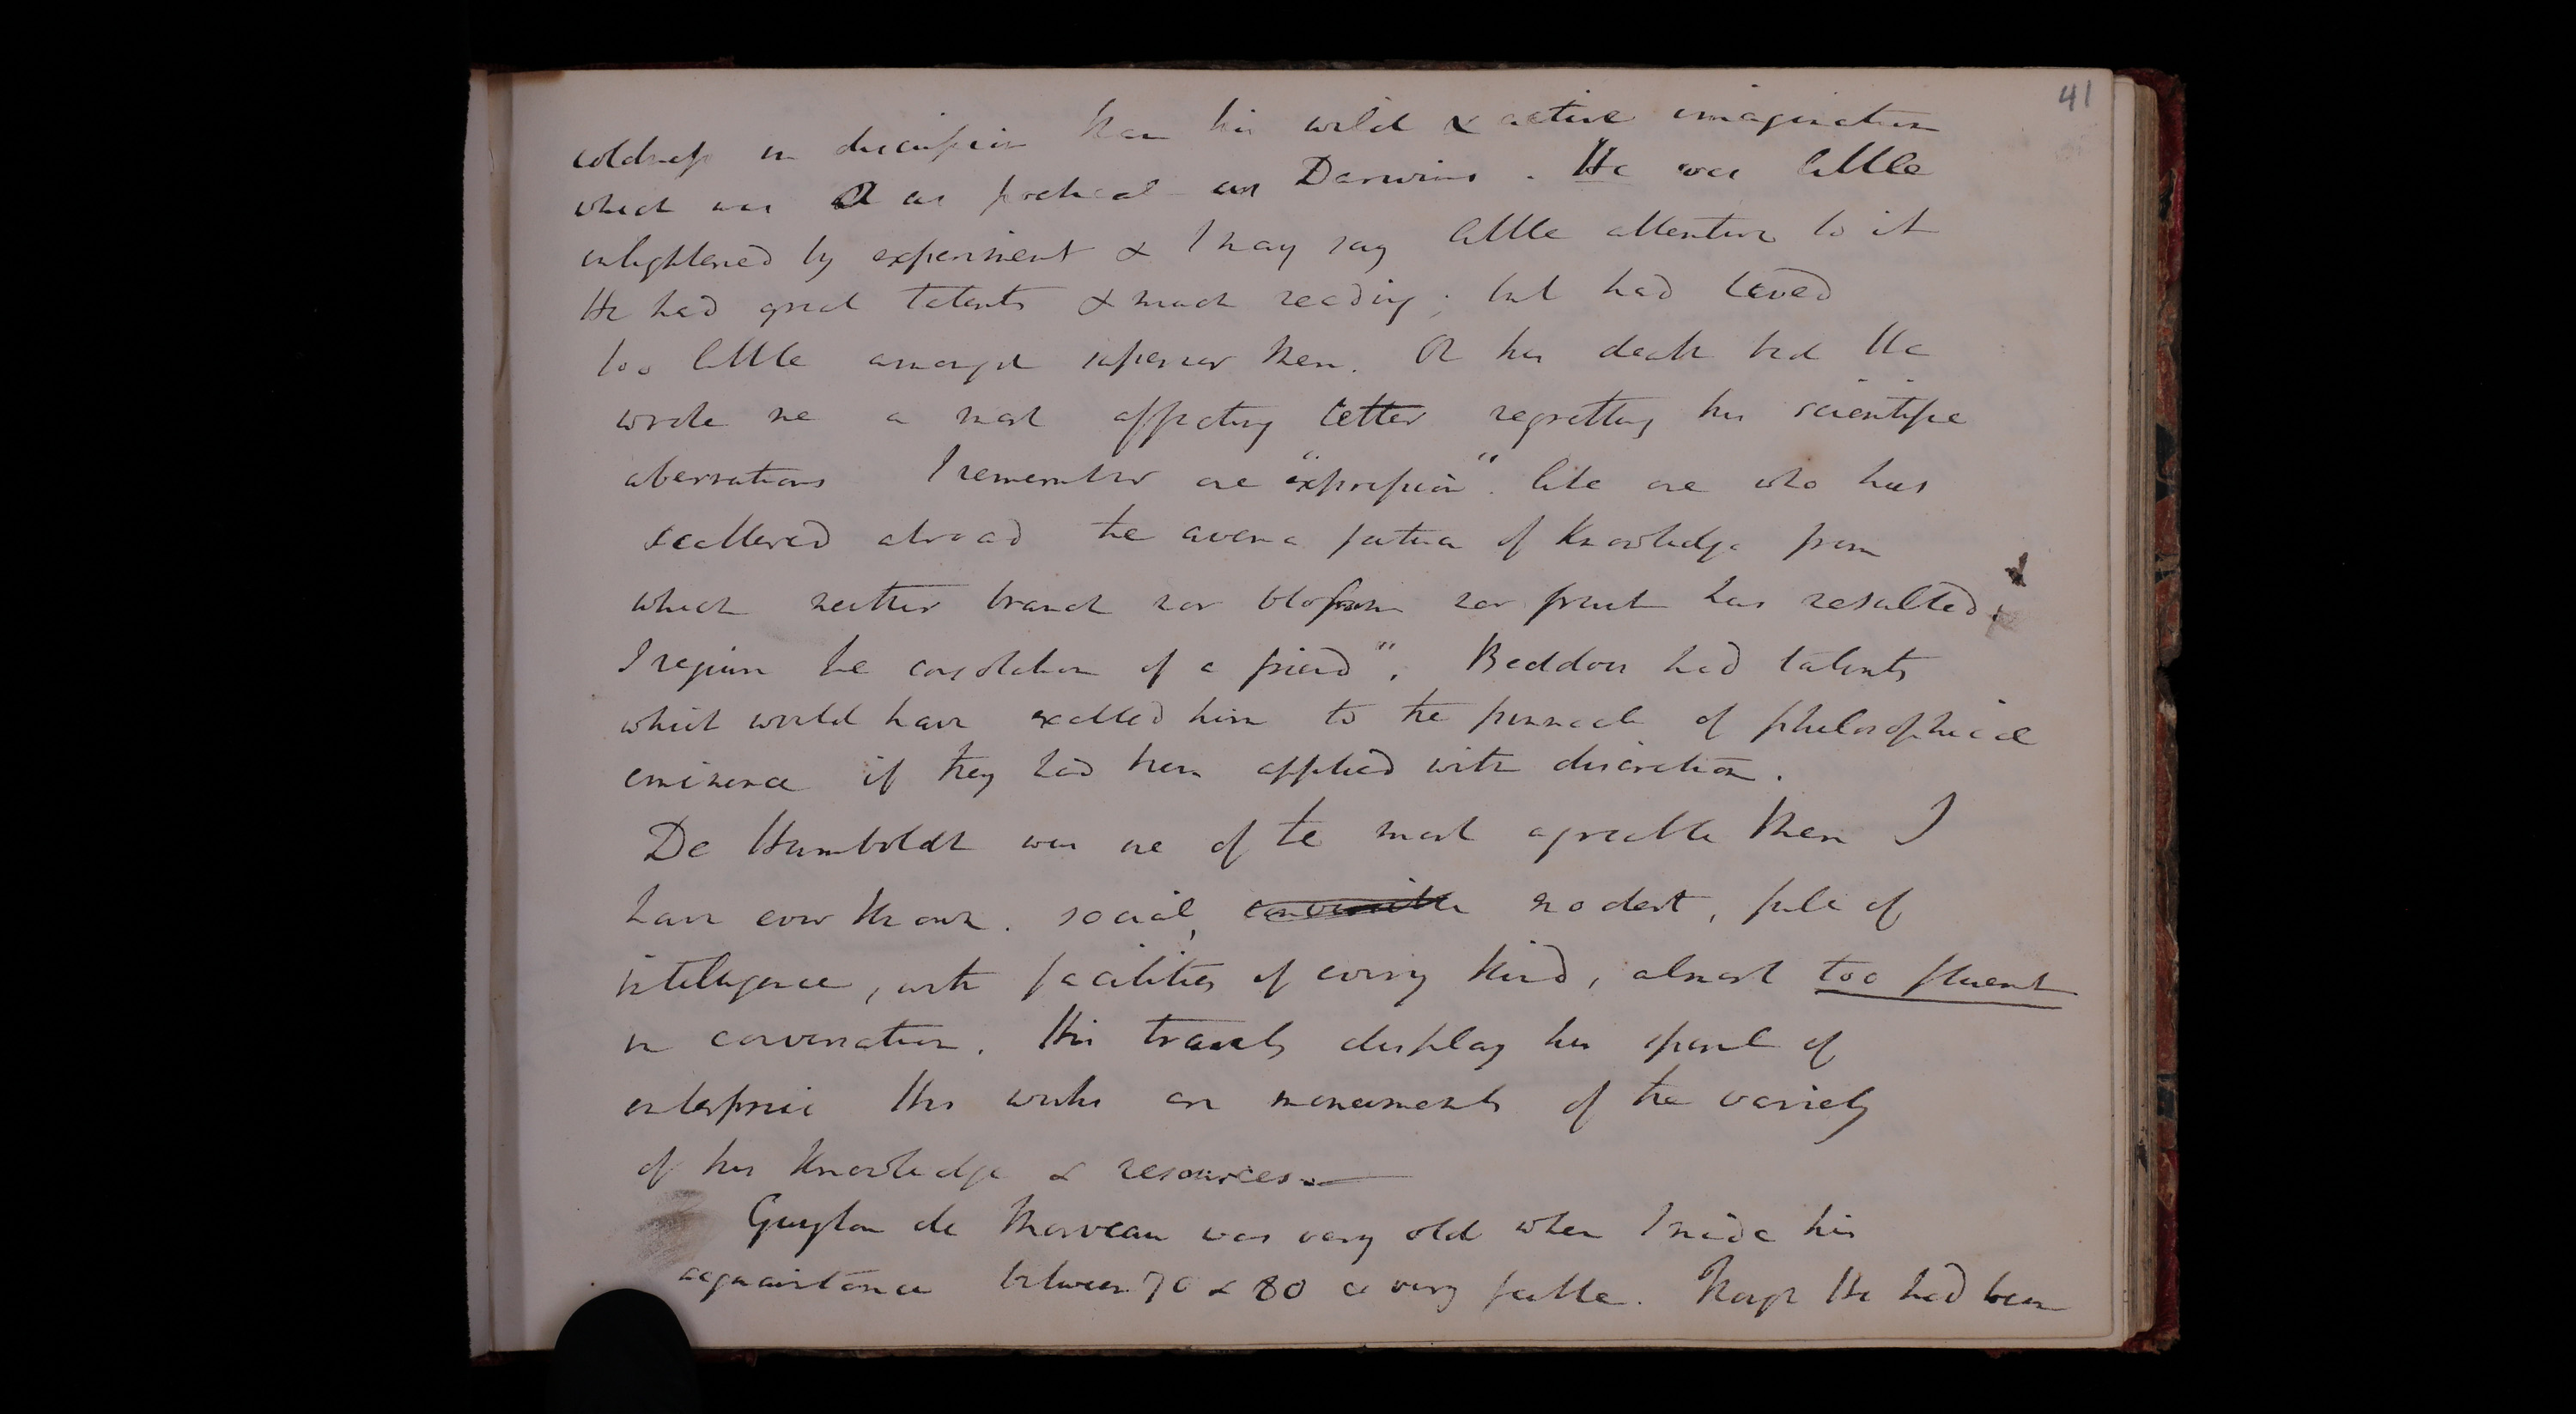 41
coldness in discussion than his wild & active imagination
which was as poetical as Darwins. He was little
enlightened by experiment & I may say little attentive to it
He had great talents & much reading; but had lived
too little amongst superior Men. On his death bed He
wrote me a most affecting letter regretting his scientific
aberrations I remember one "expression". like one who has
scattered abroad the avena fatua of Knowledge from
which neither branch nor blossom nor fruit has resulted.
I require the consolation of a friend". Beddoes had talents
which would have exalted him to the pinnacle of philosophical
eminence if they had been applied with discretion.
De Humboldt was one of the most agreeable Men I
have ever Known. social, modest, full of
intelligence, with facilities of every Kind, almost too fluent
in conversation. His travels display his spirit of
enterprise His works are monuments of the variety
of his Knowledge & resources.—
Guyton de Morveau was very old when I made his
acquaintance between 70 & 80 & very feeble. Though He had been